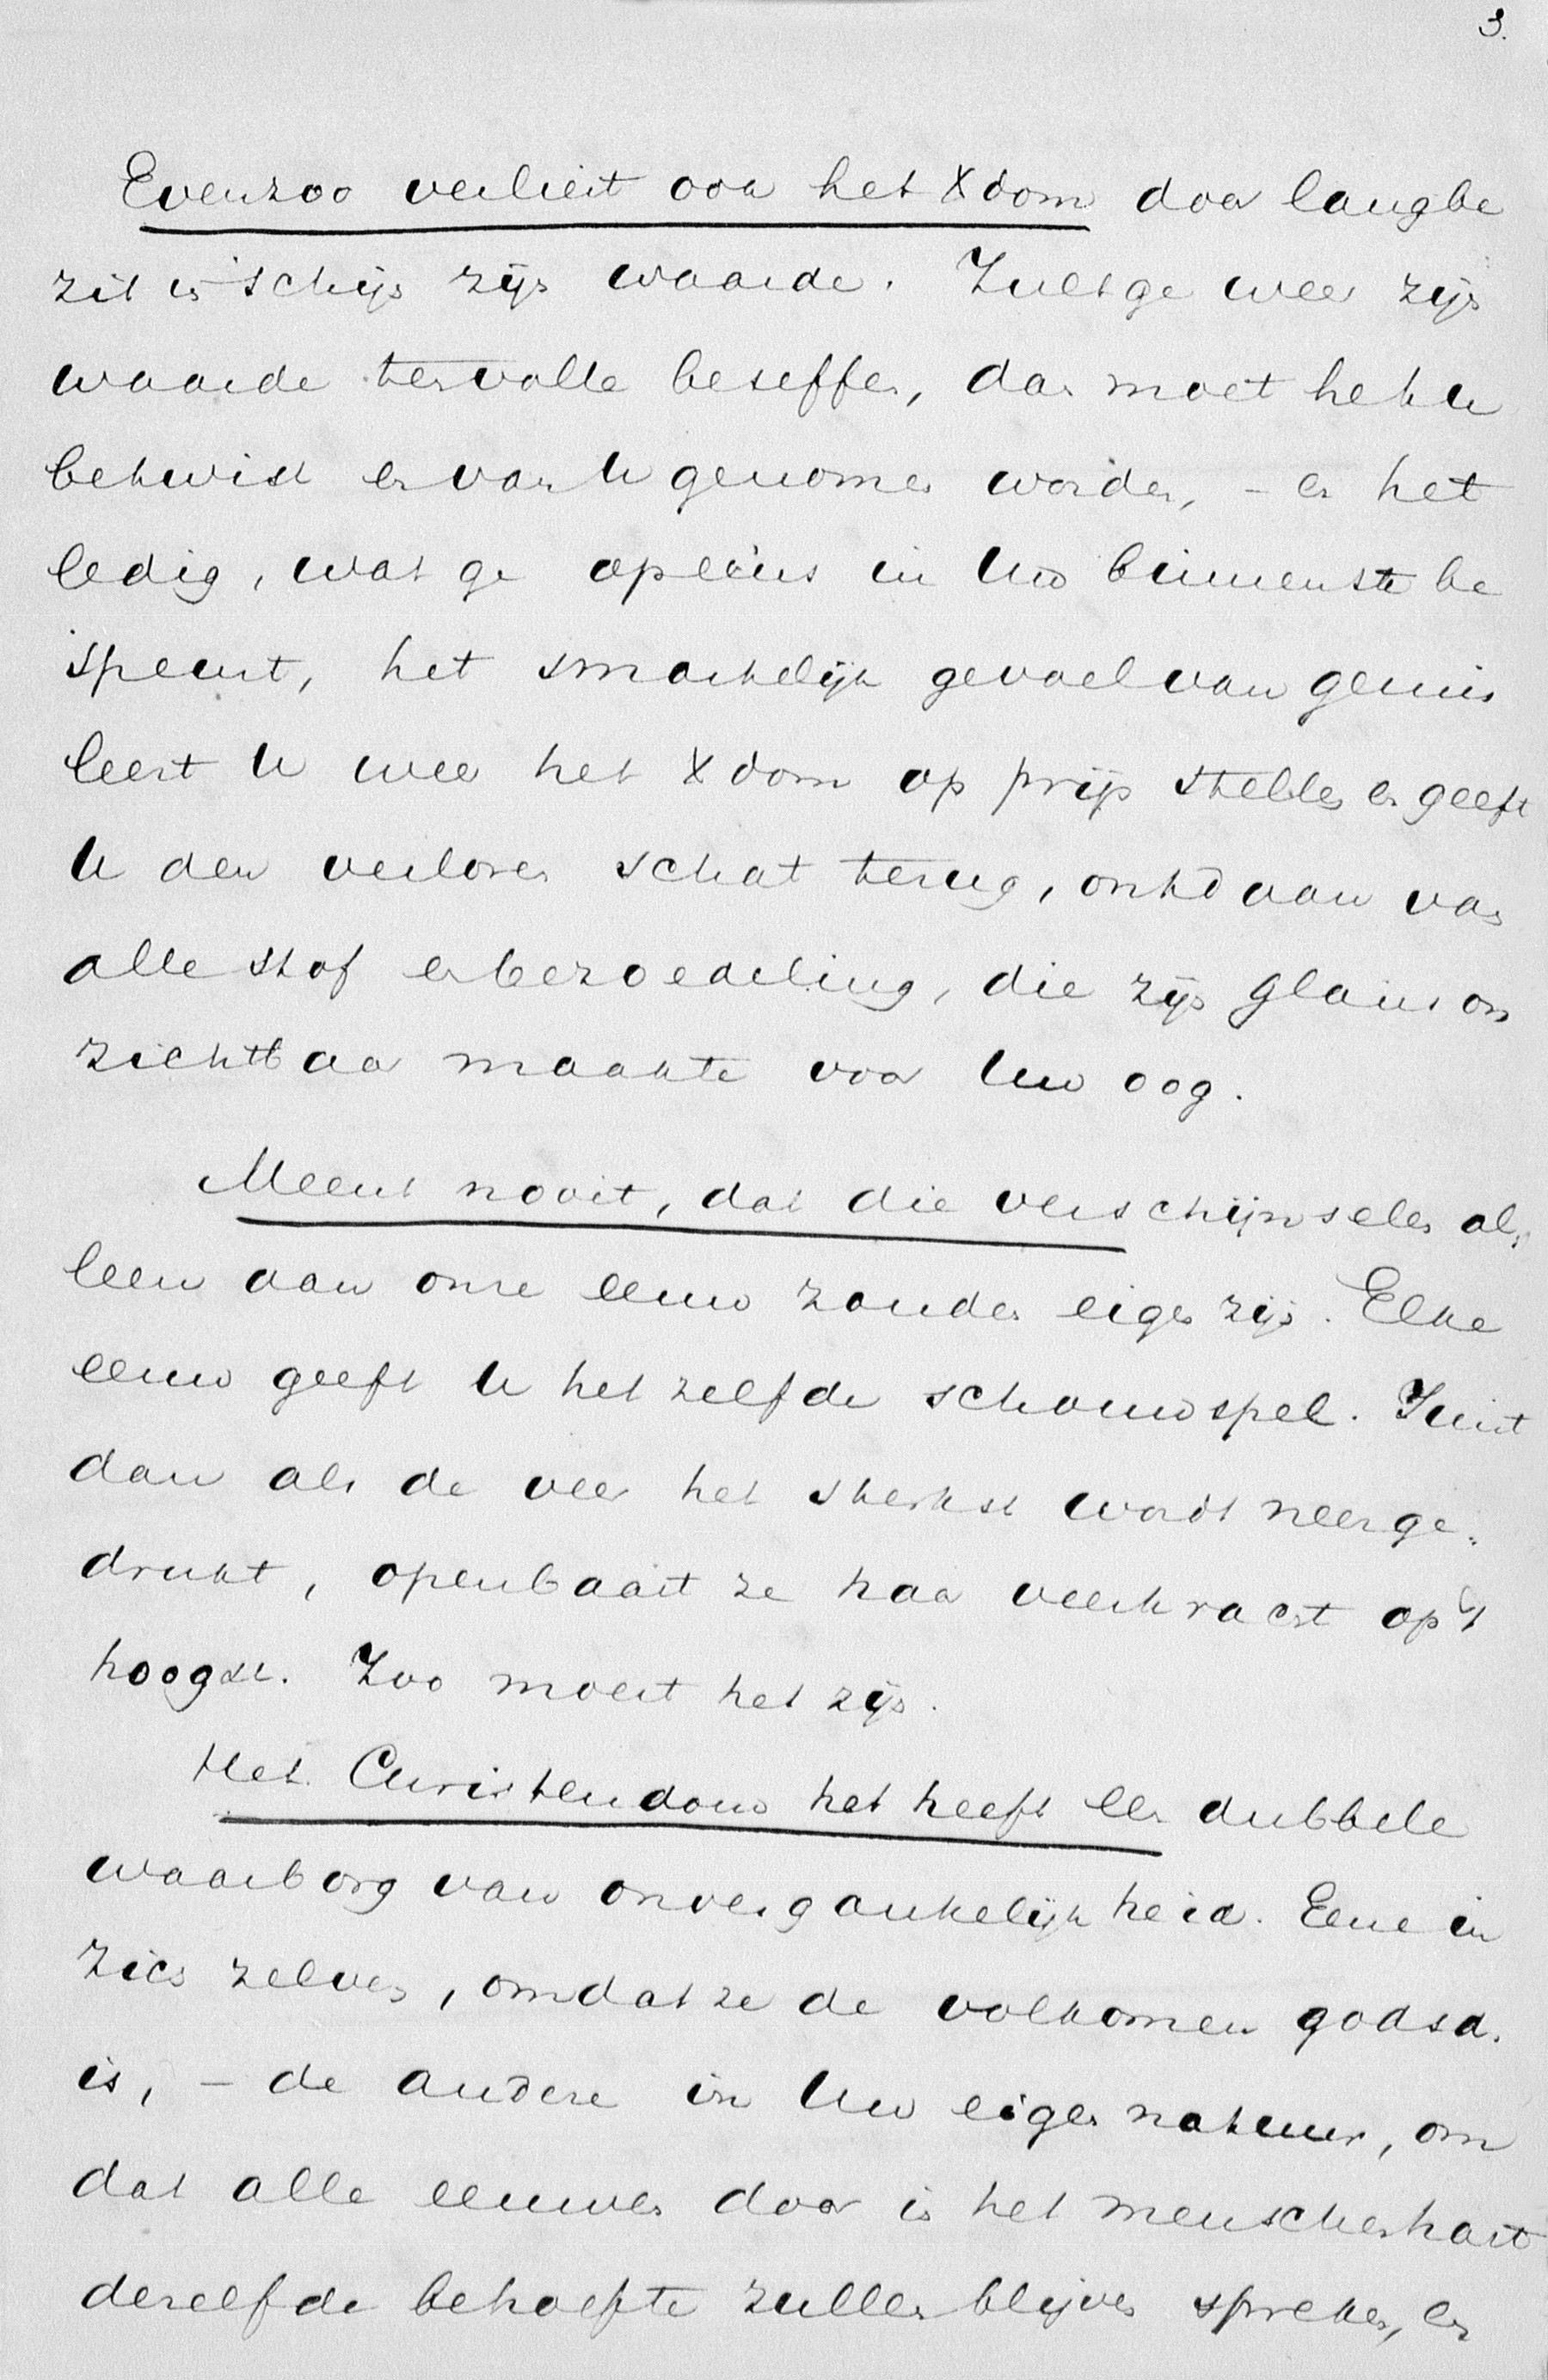 3.
Evenzoo verliest ook het Xdom door langbe
zit in schijn zijn waarde. Zult ge weer zijn
waarde ten volle beseffen, dan moet het u
betwist en van U genomen worden, - en het
ledig, wat ge opeens in Uw binnenste be
speurt, het smartelijk gevoel van gemis
leert U weer het Xdom op prijs stellen en geeft
U den verloren schat terug, ontdaan van
alle stof en bezoedeling, die zijn glans on
zichtbaar maakte voor Uw oog.
Meent nooit, dat die verschijnselen al,
leen aan onze eeuw zouden eigen zijn. Elke
eeuw geeft U hetzelfde schouwspel. Juist
dan als de veer het sterkst wordt neerge:
drukt, openbaart ze haar veerkracht op 't
hoogst. Zoo moest het zijn.
Het Christendom het heeft een dubbele
waarborg van onvergankelijkheid. Eene in
zich zelven, omdat ze de volkomen godsd.
is, - de andere in Uw eigen natuur, om
dat alle eeuwen door in het menschenhart
dezelfde behoefte zullen blijven spreken, en